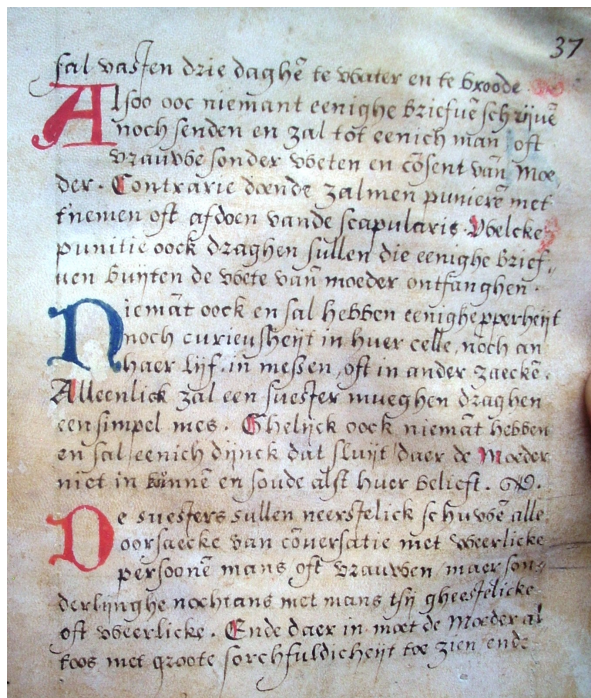 37
sal vasten drie daghē te water en te broode
Alsoo ooc niemant eenighe briefuē schrijuē
noch senden en zal tot eenich man oft
vrauwe sonder weten en cōsent van Moe„
der. Contrarie doende zalmen punierē met
t'nemen oft afdoen vande scapularis. Welcke
punitie oock draghen sullen die eenighe brief„
uen buijten de wete van moeder ontfanghen.
Niemāt oock en sal hebben eenighe pperheijt
noch curieusheijt in huer celle, noch an
haer lijf. in messen, oft in ander zaeckē.
Alleenlick zal een suester mueghen draghen
een simpel mes. Ghelijck oock niemāt hebben
en sal eenich dijnck dat sluijt daer de Moeder
niet in künne en soude alst huer belieft.
De suesters sullen neerstelick schuwē alle
oorsaecke van cōuersatie met weerlicke
persoonē mans oft vrauwen maer son„
derlijnghe nochtans met mans tsij gheestelicke
oft weerlicke. Ende daer in moet de Moeder al
toos met groote sorchfuldicheijt toe zien ende